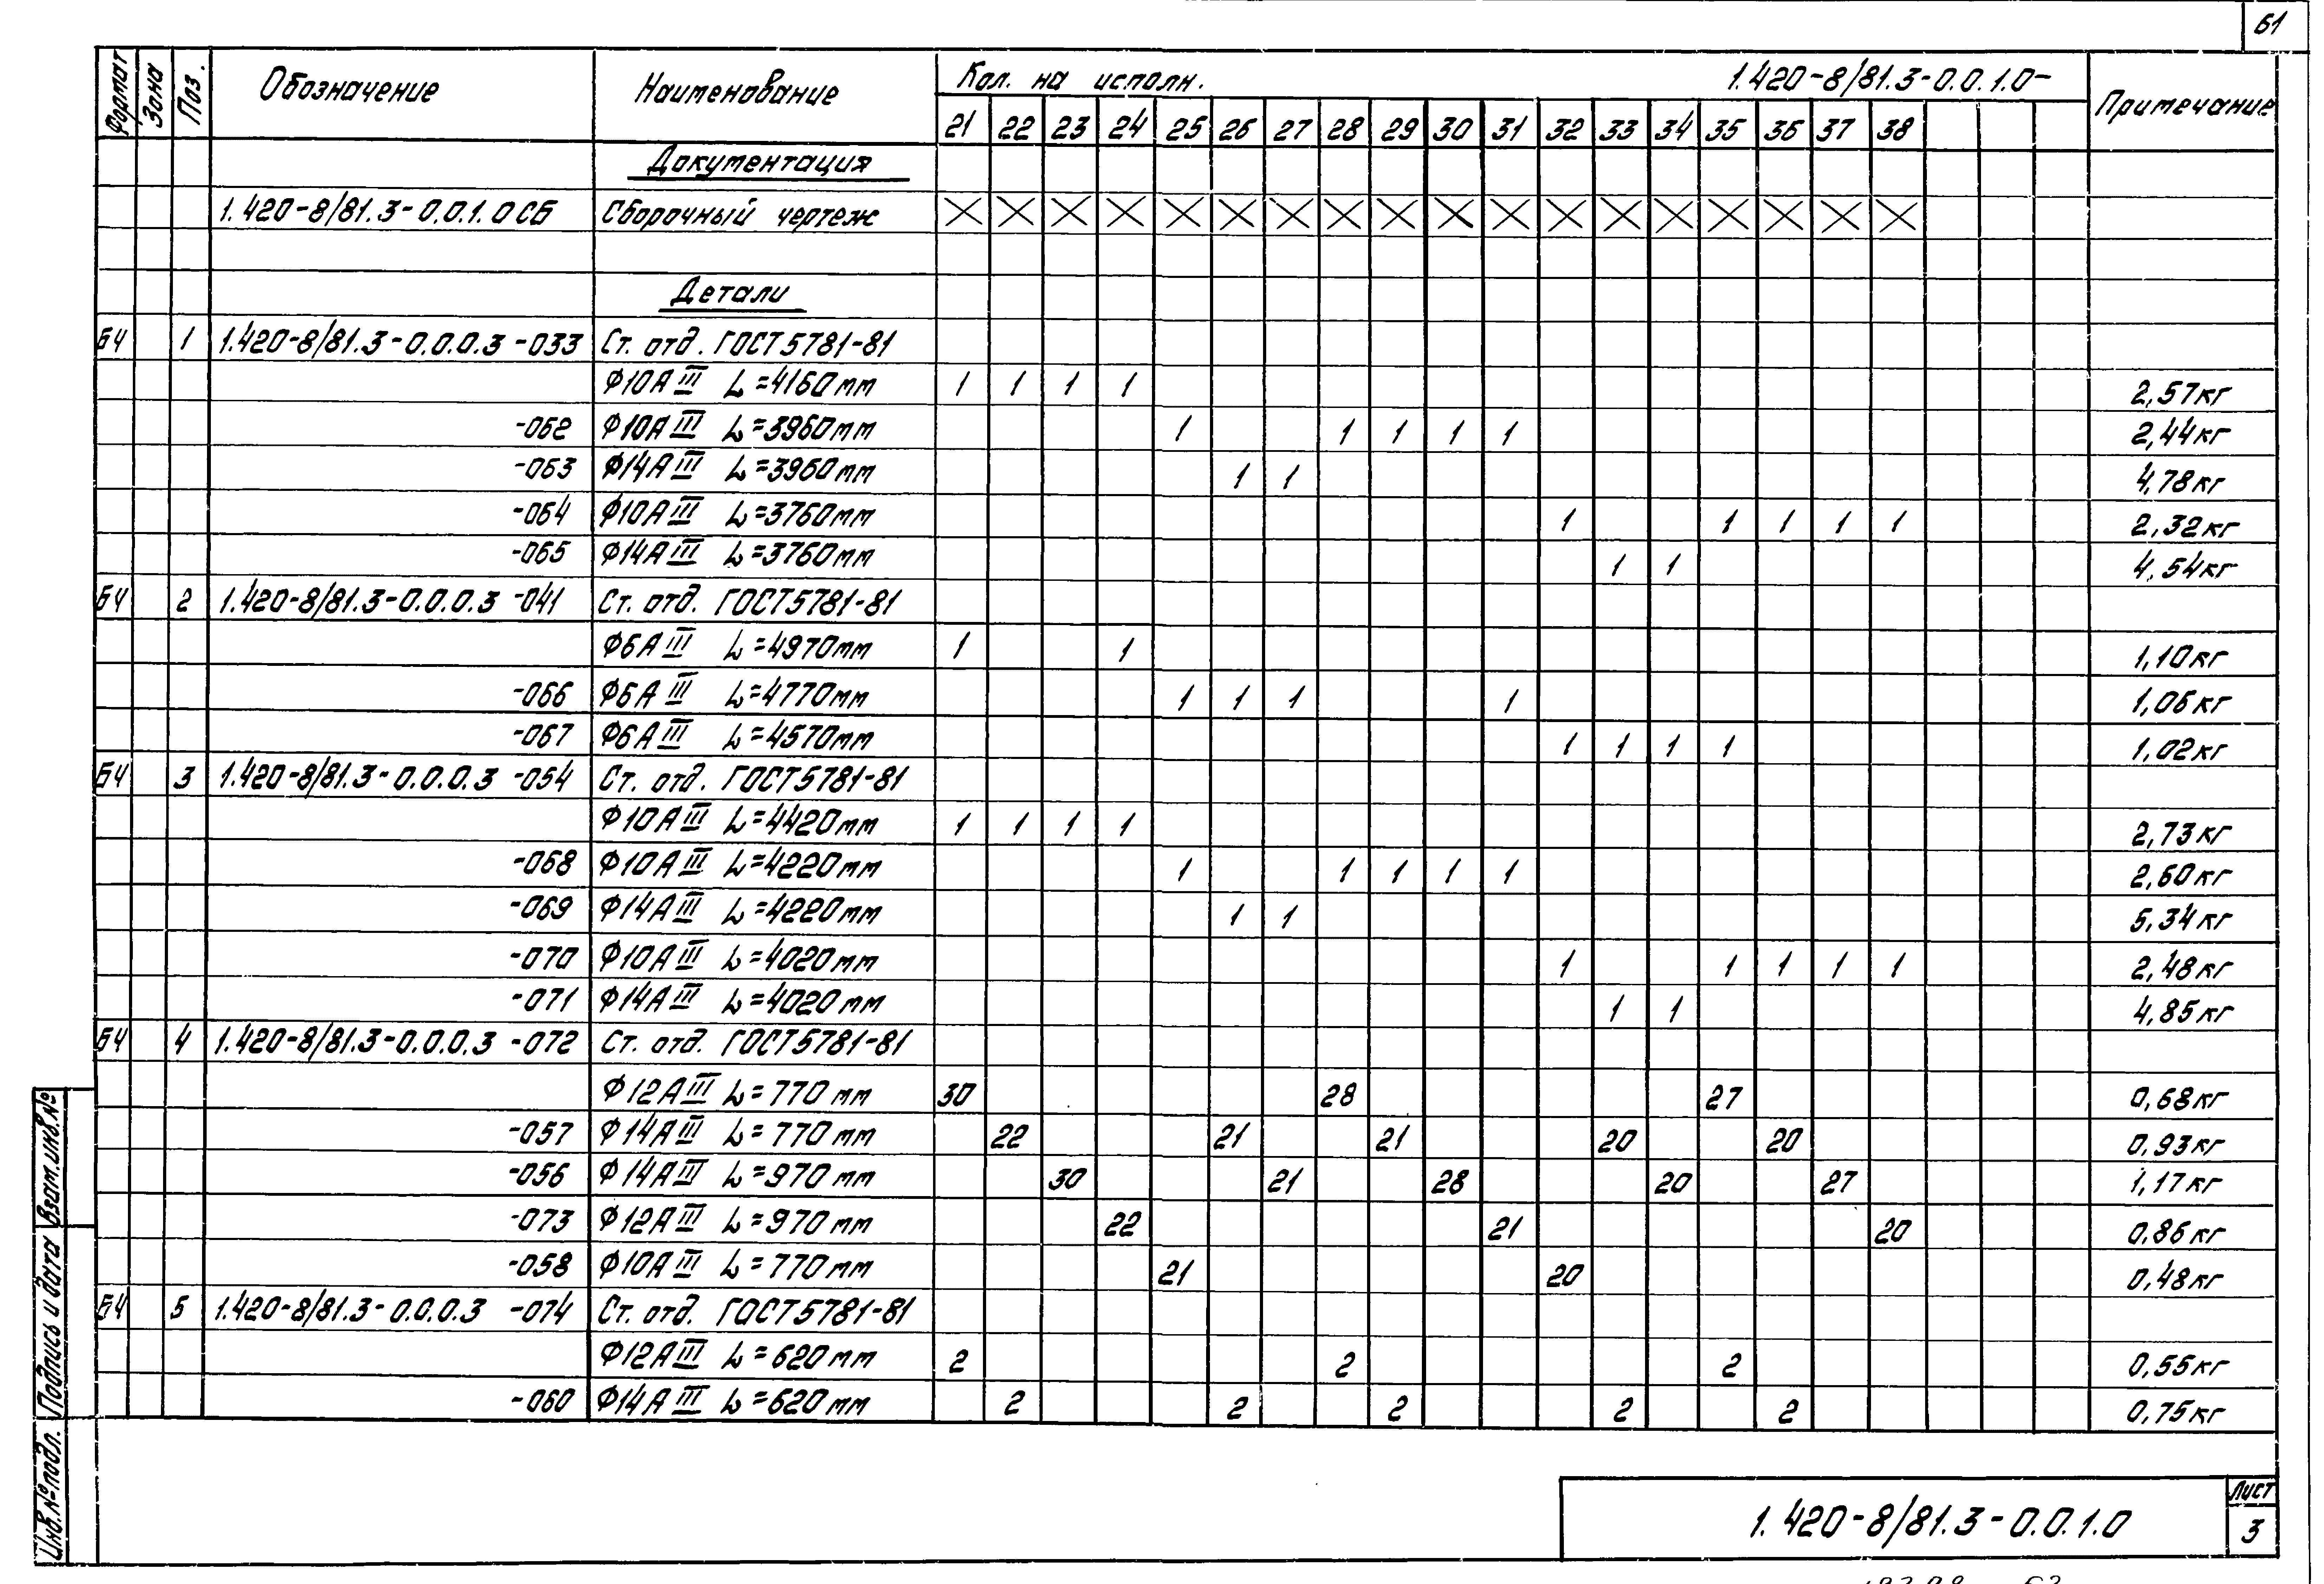 61
Формат Зона Поз. Обозначение Наименование Кол. на исполн. 1.420-8/81.3-0.0.1.0- Примечание
21 22 23 24 25 26 27 28 29 30 31 32 33 34 35 36 37 38
Документация
1.420-8/81.3-0.0.1.0 СБ Сборочный чертеж
Детали
БЧ 1 1.420-8/81.3-0.0.0.3 -033 Ст. отд. ГОСТ 5781-81
Ф10АIII L=4160мм 1 1 1 1 2,57кг
-062 Ф10АIII L=3960мм 1 1 1 1 1 2,44кг
-063 Ф14АIII L=3960мм 1 1 4,78кг
-064 Ф10АIII L=3760мм 1 1 1 1 1 2,32кг
-065 Ф14АIII L=3760мм 1 1 4,54кг
БЧ 2 1.420-8/81.3-0.0.0.3 -041 Ст. отд. ГОСТ 5781-81
Ф6АIII L=4970мм 1 1 1,10кг
-066 Ф6АIII L=4770мм 1 1 1 1 1,06кг
-067 Ф6АIII L=4570мм 1 1 1 1 1,02кг
БЧ 3 1.420-8/81.3-0.0.0.3 -054 Ст. отд. ГОСТ 5781-81
Ф10АIII L=4420мм 1 1 1 1 2,73кг
-068 Ф10АIII L=4220мм 1 1 1 1 1 2,60кг
-069 Ф14АIII L=4220мм 1 1 5,34кг
-070 Ф10АIII L=4020мм 1 1 1 1 1 2,48кг
-071 Ф14АIII L=4020мм 1 1 4,85кг
БЧ 4 1.420-8/81.3-0.0.0.3 -072 Ст. отд. ГОСТ 5781-81
Ф12АIII L=770мм 30 28 27 0,68кг
-057 Ф14АIII L=770мм 22 21 21 20 20 0,93кг
-056 Ф14АIII L=970мм 30 21 28 20 27 1,17кг
-073 Ф12АIII L=970мм 22 21 20 0,86кг
-058 Ф10АIII L=770мм 21 20 0,48кг
БЧ 5 1.420-8/81.3-0.0.0.3 -074 Ст. отд. ГОСТ 5781-81
Ф12АIII L=620мм 2 2 2 0,55кг
-060 Ф14АIII L=620мм 2 2 2 2 2 0,75кг
Инв.№подл. Подпись и дата Взам.инв.№
1.420-8/81.3-0.0.1.0
Лист
3